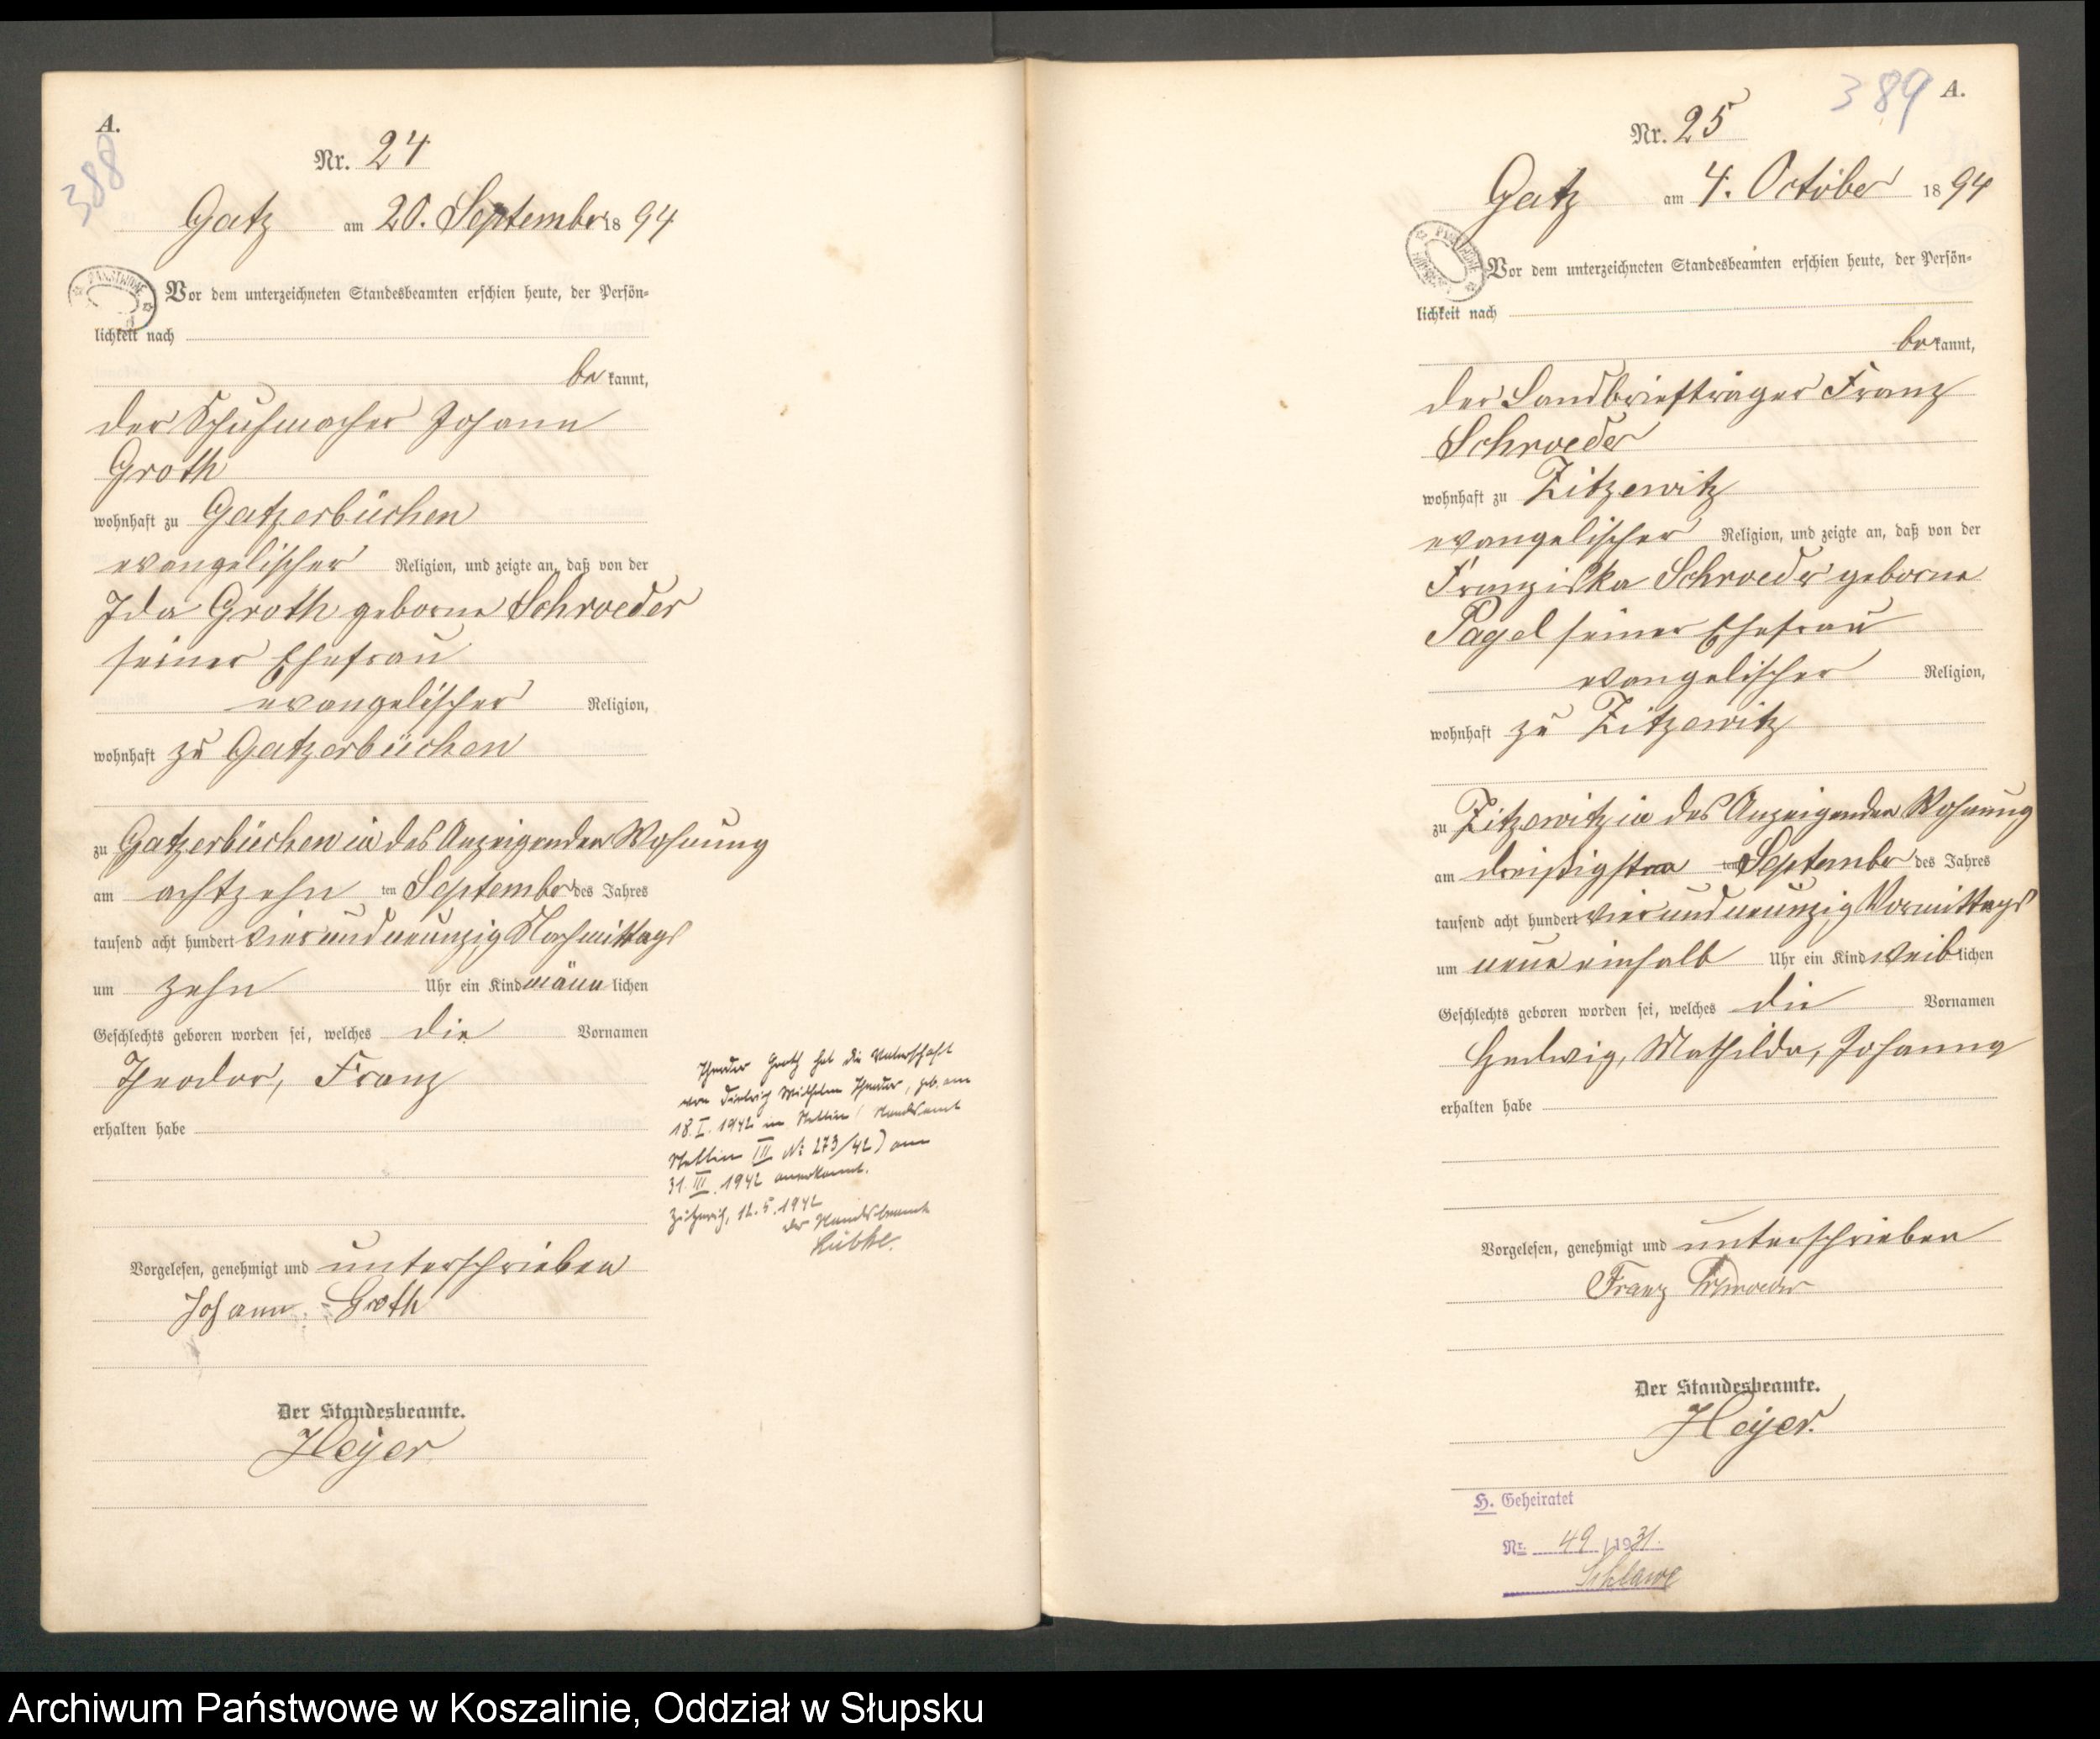 A.
388
Nr. 24
Gatz am 20. September 1894
Vor dem unterzeichneten Standesbeamten erschien heute, der Persön-
lichkeit nach
bekannt,
der Schuhmacher Johann
Groth
wohnhaft zu Gatzerbüchen
evangelischer Religion, und zeigte an, daß von der
Ida Groth geborne Schroeder
seiner Ehefrau
evangelischer Religion,
wohnhaft zu Gatzerbüchen
zu Gatzerbüchen in des Anzeigenden Wohnung
am achtzehn ten September des Jahres
tausend acht hundert vierundneunzig Nachmittags
um zehn Uhr ein Kind männlichen
Geschlechts geboren worden sei, welches die Vornamen
Theodor, Franz
erhalten habe
Theodor Groth hat die Vaterschaft
von Dietrich Wilhelm Theodor, geb. am
18.I.1942 in Stettin (Standesamt
Stettin III Nr 273/42) am
31.III.1942 anerkannt.
Zitzewitz, 12.5.1942
der Standesbeamte
Lübke.
Vorgelesen, genehmigt und unterschrieben
Johann Groth
Der Standesbeamte.
Heyer
389
A.
Nr. 25
Gatz am 4. October 1894
Vor dem unterzeichneten Standesbeamten erschien heute, der Persön-
lichkeit nach
bekannt,
der Landbriefträger Franz
Schroeder
wohnhaft zu Zitzewitz
evangelischer Religion, und zeigte an, daß von der
Franziska Schroeder geborne
Pagel seiner Ehefrau
evangelischer Religion,
wohnhaft zu Zitzewitz
zu Zitzewitz in des Anzeigenden Wohnung
am dreißigsten ten September des Jahres
tausend acht hundert vierundneunzig Vormittags
um neun einhalb Uhr ein Kind weiblichen
Geschlechts geboren worden sei, welches die Vornamen
Hedwig, Mathilde, Johanna
erhalten habe
Vorgelesen, genehmigt und unterschrieben
Franz Schroeder
Der Standesbeamte.
Heyer.
H. Geheiratet
Nr. 49 /1931.
Schlawe
Archiwum Państwowe w Koszalinie, Oddział w Słupsku